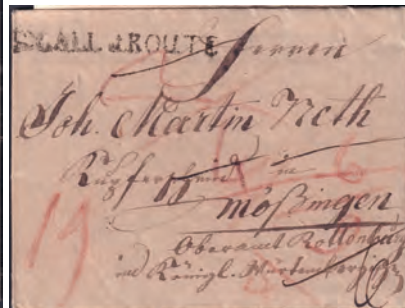 ST.GALL d.ROUTE
Herren
Joh. Martin Neth
Kupferschmid in
mößingen
Oberamt Rottenburg
im Königl. Würtembergischen